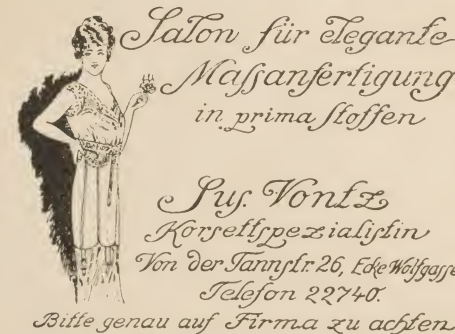 Salon für elegante
Maſsanfertigung
in prima Stoffen
Sus. Vontz
Korsettſpezialiſtin
Von der Tannſtr. 26, Ecke Wolfgaſſe
Telefon 22740.
Bitte genau auf Firma zu achten